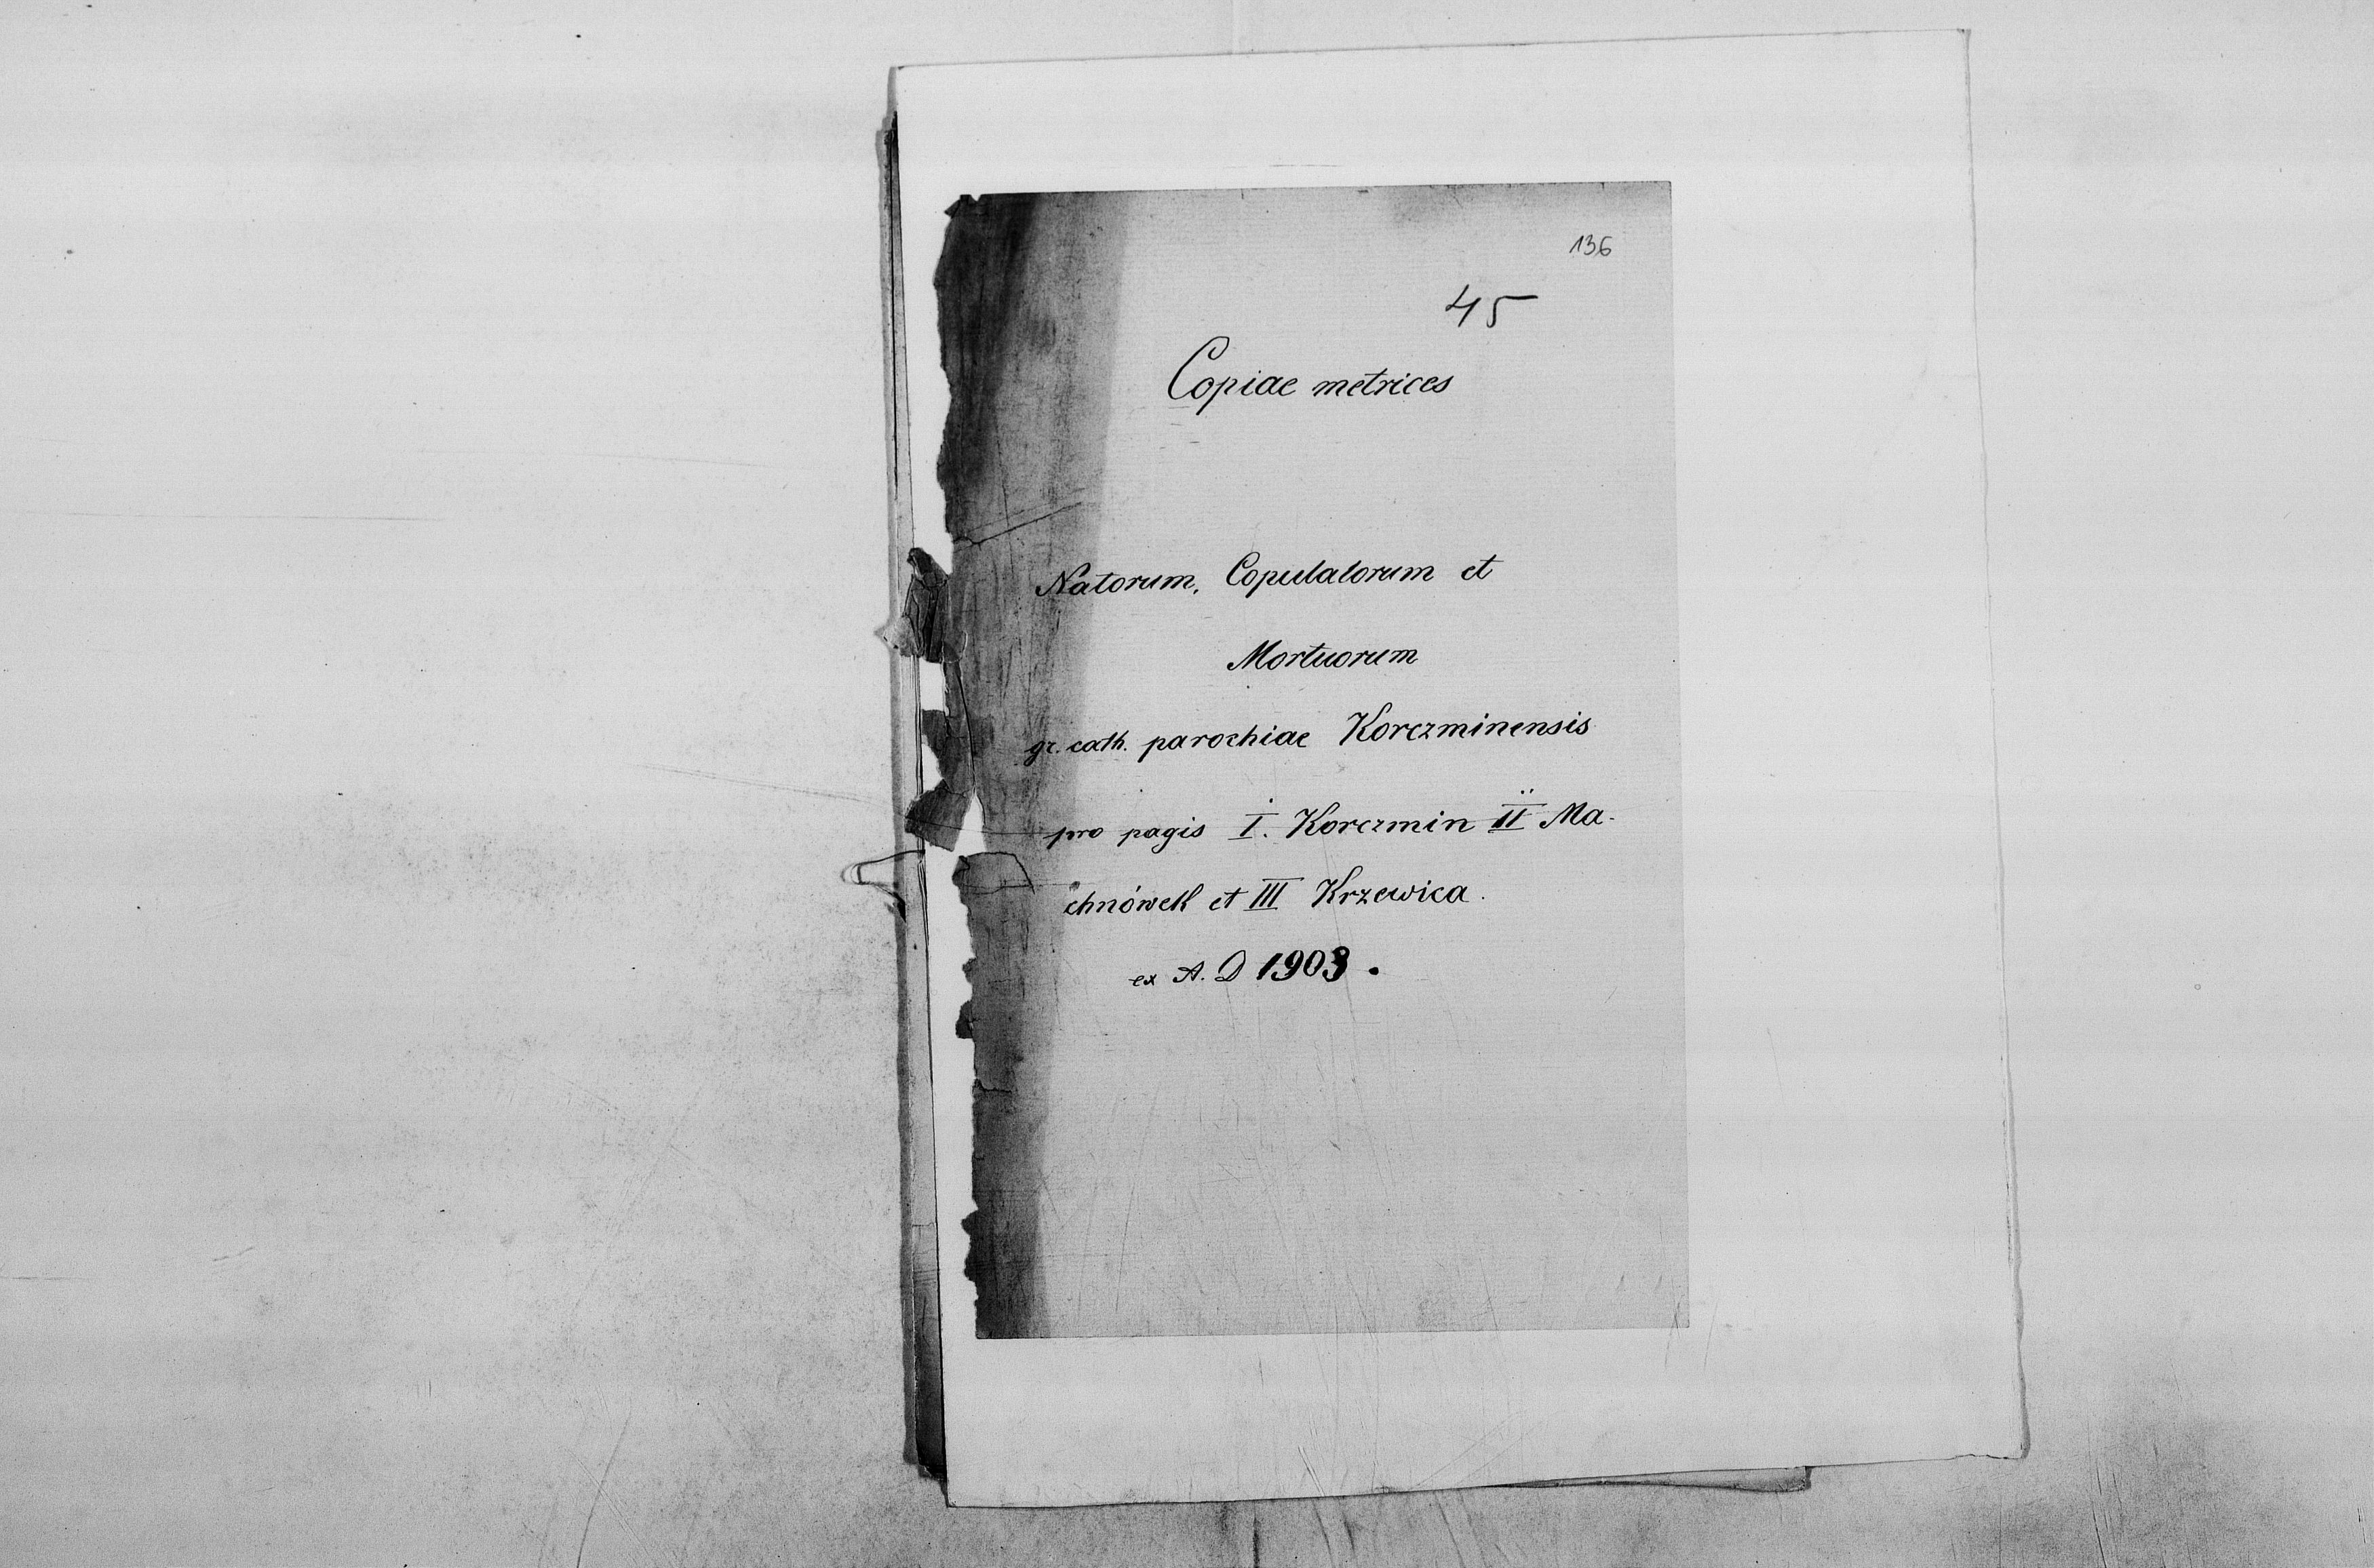 136
45
Copiae metrices
Natorum, Copulatorum et
Mortuorum
gr. cath. parochiae Korczminensis
pro pagis I. Korczmin II Ma-
chnówek et III Krzewica.
ex A. D 1903.